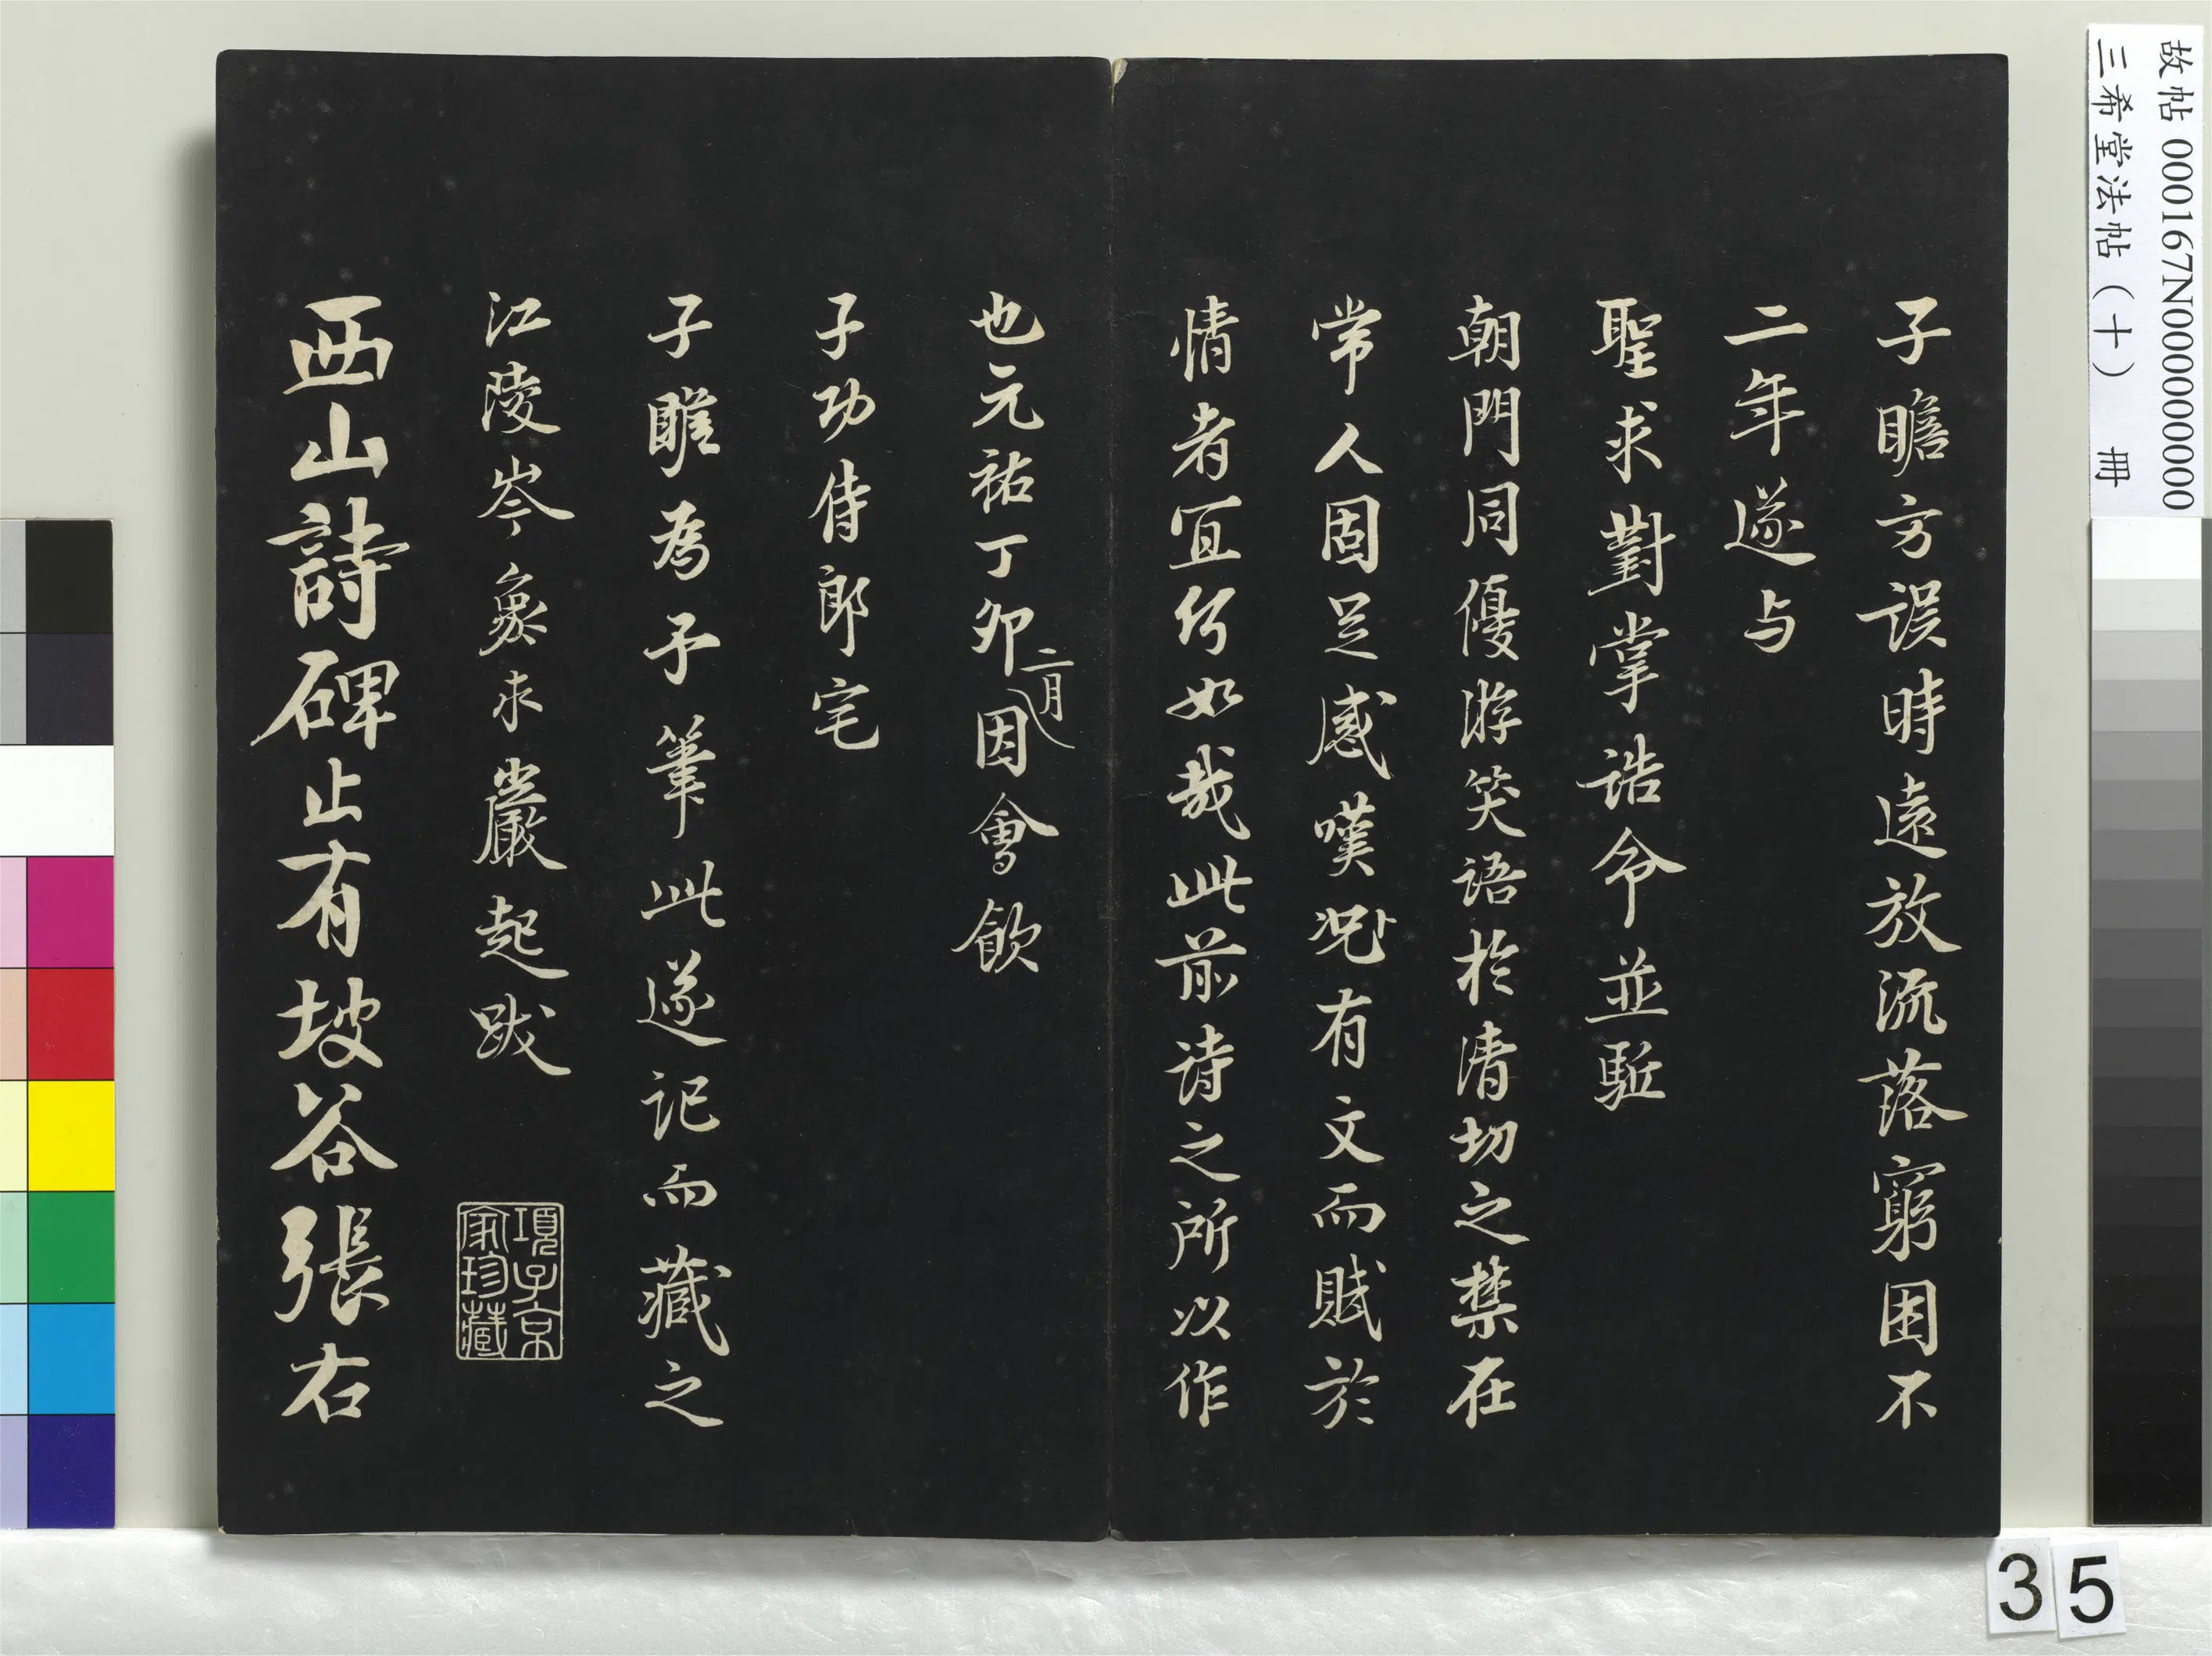 子瞻方误時遠放流落窮困不
二年遂与
聖求對掌誥命並馳
朝門同優游笑語於清切之禁在
常人固足感嘆况有文而賦於
情者宜何如哉此前诗之所以作
也元祐丁卯二月因會飲
子功侍郎宅
子瞻為予筆此遂记而藏之
江陵岑象求巖起跋
項子京家珍藏
西山詩碑止有坡谷張右
故帖 000167N000000000
三希堂法帖（十） 冊
35